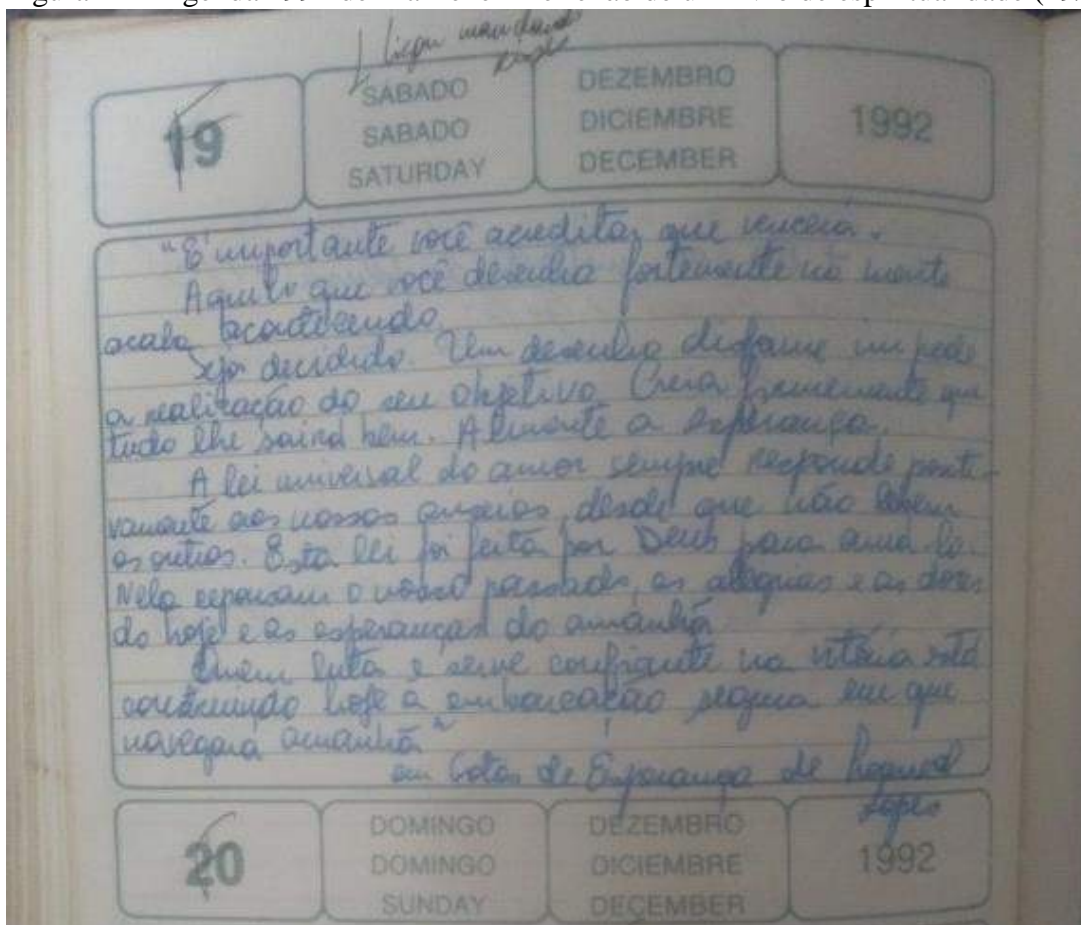 liguei mandando
19
SÁBADO
SABADO
SATURDAY
DEZEMBRO
DICIEMBRE
DECEMBER
1992
"É importante você acreditar que vencerá.
Aquilo que você desenha fortemente na mente
acaba acontecendo.
Seja decidido. Um desenho disforme impede
a realização do seu objetivo. Creia firmemente que
tudo lhe sairá bem. Alimente a esperança.
A lei universal do amor sempre responde positi-
vamente aos nossos anseios, desde que não lesem
os outros. Esta lei foi feita por Deus para amá-la.
Nela repousam o nosso passado, as alegrias e as dores
do hoje e as esperanças do amanhã.
Quem luta e serve confiante na vitória está
construindo hoje a embarcação segura em que
navegará amanhã"
em Gotas de Esperança de
Lopes
20
DOMINGO
DOMINGO
SUNDAY
DEZEMBRO
DICIEMBRE
DECEMBER
1992